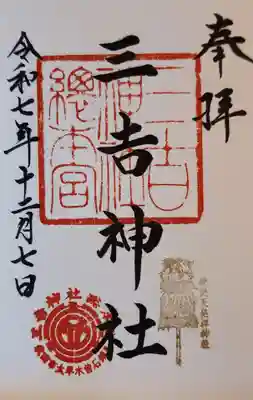 奉拝
三吉神社
三吉神社總本宮
令和七年十二月七日